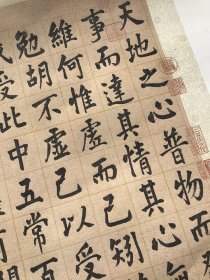 天地之心普物而
事而達其情其心
維何惟虛而已矧
勉胡不虛己以受
受此中五常百